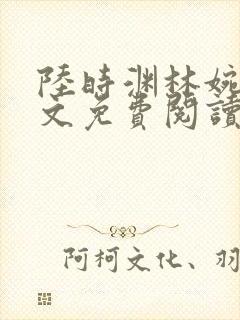 陸時渊林婉
文免費閱讀
阿柯文化、羽